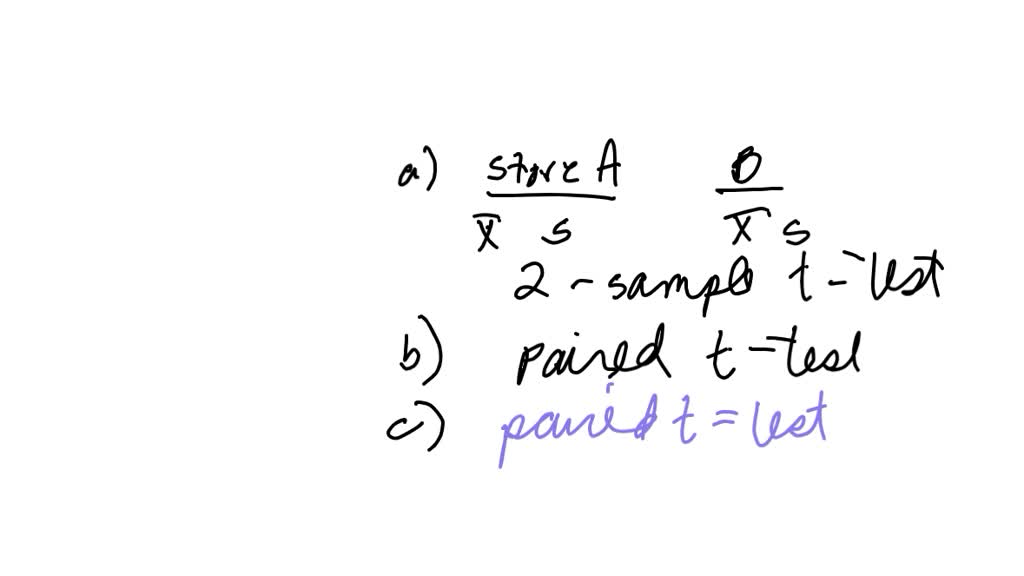 a) store A B
x̅ s x̅ s
2 - sample t - test
b) paired t - test
c) paired t = test